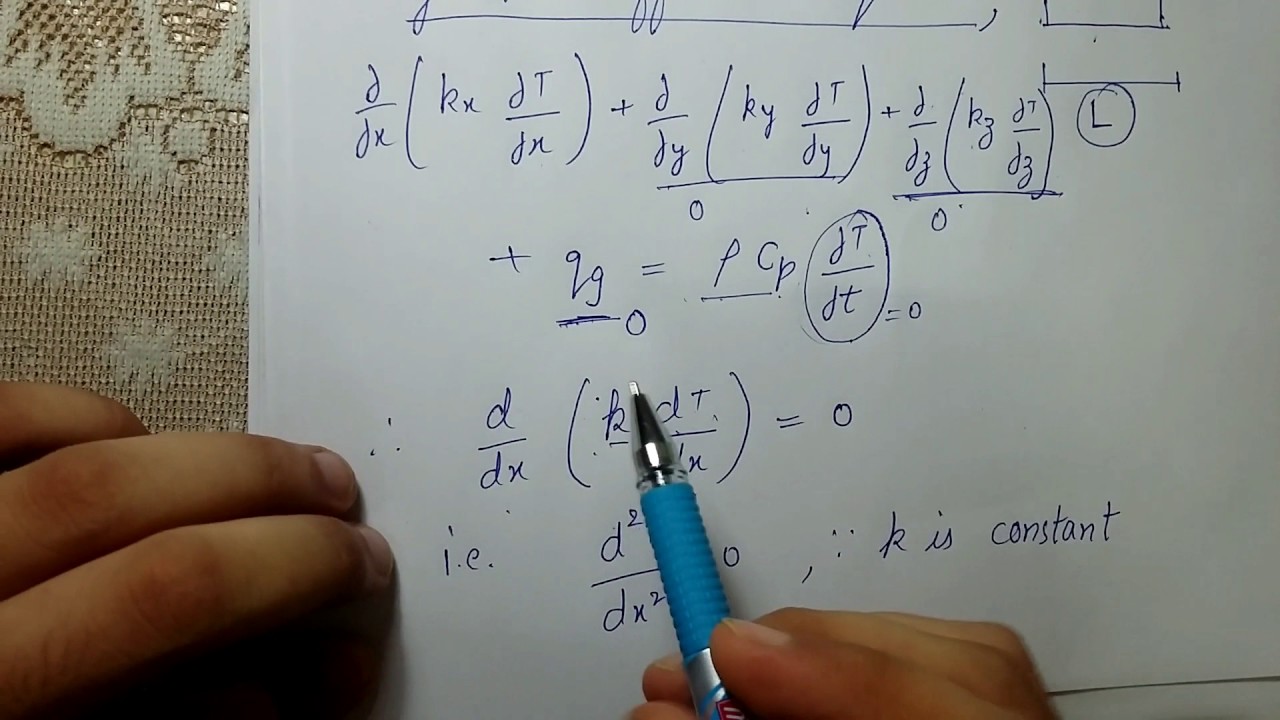 ∂/∂x ( kx ∂T/∂x ) + ∂/∂y ( ky ∂T/∂y ) + ∂/∂z ( kz ∂T/∂z ) L
0 0
+ qg = ρ Cp ∂T/∂t = 0
0
∴ d/dx ( k dT/dx ) = 0
i.e. d²/dx² 0 , ∵ k is constant